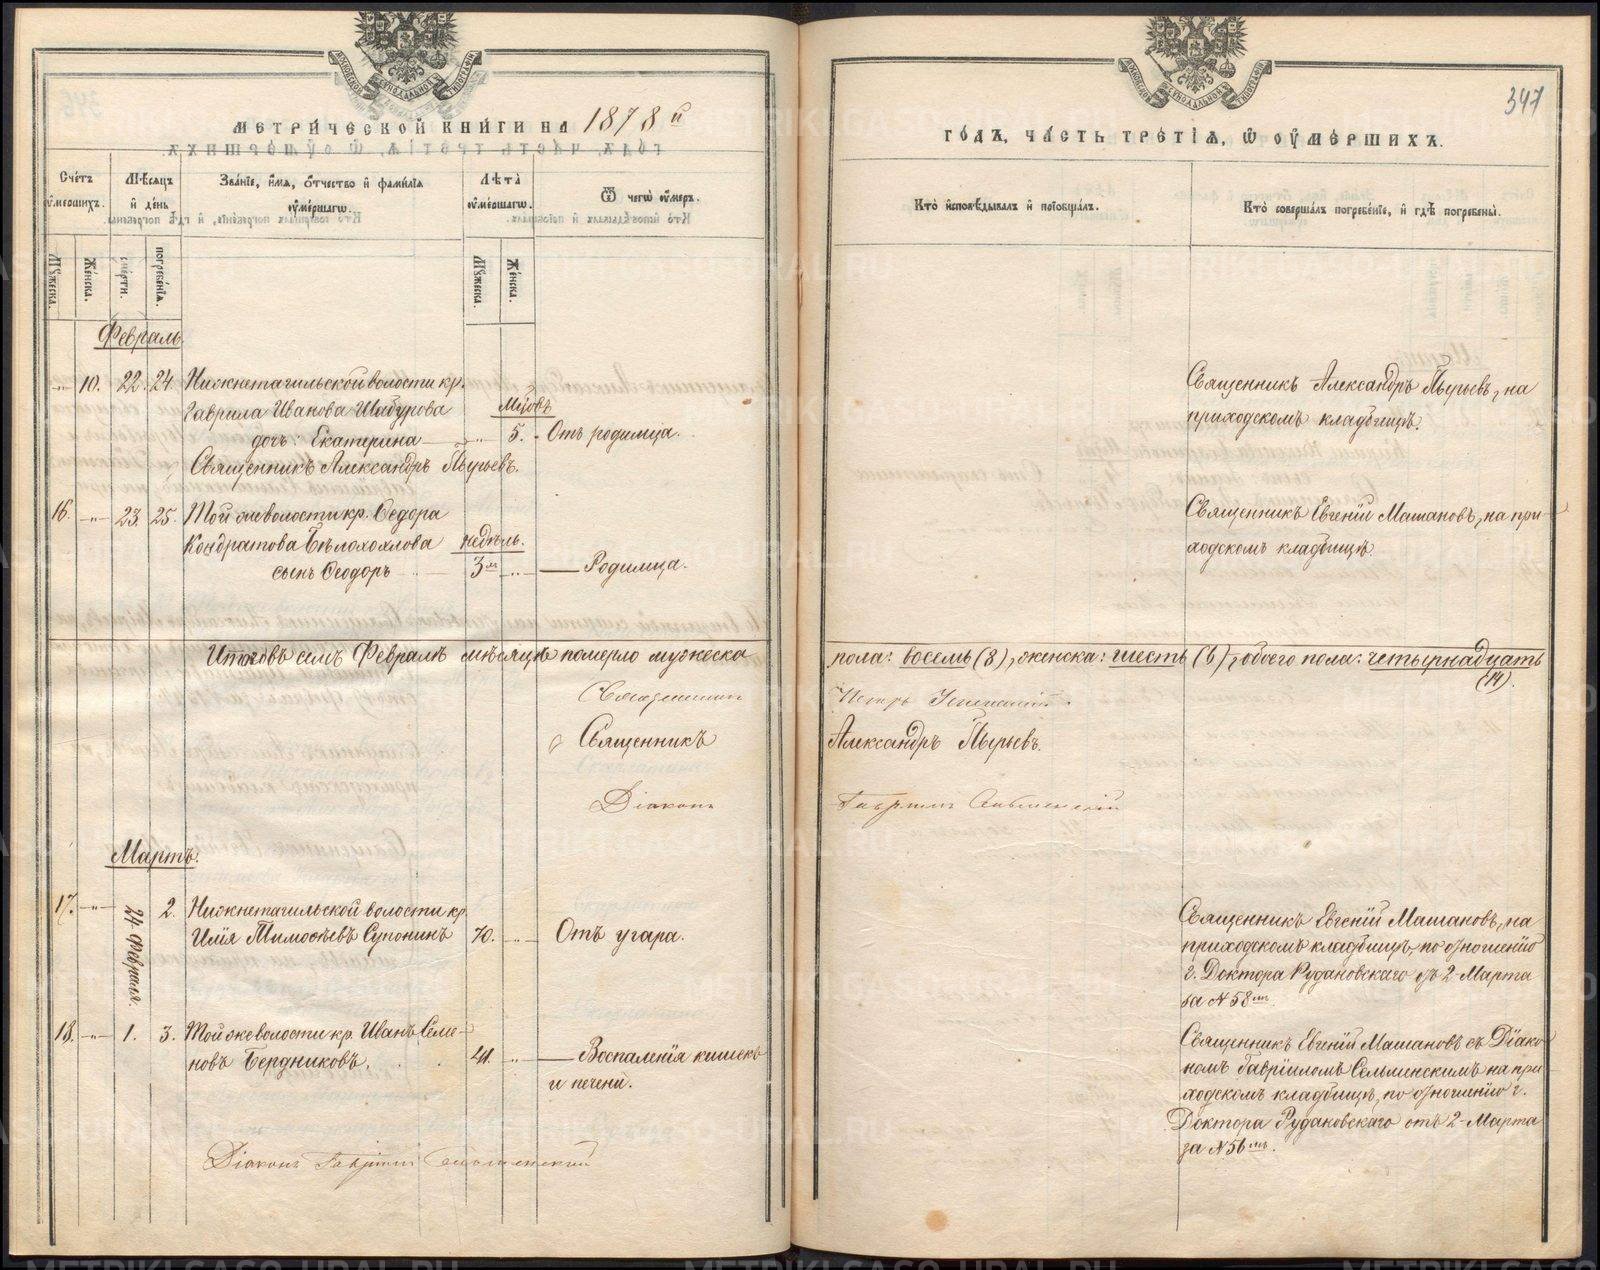 МЕТРИЧЕСКОЙ КНИГИ НА 1878 й
Счетъ умершихъ.
Мѣсяцъ и день
Званіе, имя, отчество и фамилія умершагѡ.
Лѣта умершагѡ.
Ѿ чегѡ умеръ.
Мужеска.
Женска.
смерти.
погребенія.
Мужеска.
Женска.
Февраль.
„ 10. 22. 24. Нижнетагильской волости кр.
Гаврила Иванова Шабурова Мѣсовъ
дочь: Екатерина „ 5. Отъ родимца.
Священникъ Александръ Пырьевъ.
16. „ 23. 25. Той же волости кр. Ѳедора
Кондратова Бѣлохохлова недѣль.
сынъ Ѳеодоръ 3 „ Родимца.
Итого въ семъ Февралѣ мѣсяцѣ померло мужеска
Священникъ
Священникъ
Діаконъ
Мартъ.
17. „ 24 Февраля. 2. Нижнетагильской волости кр.
Илія Тимоѳѣевъ Супонинъ 70. „ Отъ угара.
18. „ 1. 3. Той же волости кр. Иванъ Семе-
новъ Бердниковъ. 41. „ Воспаленія кишекъ
и печени.
Діаконъ Гавріилъ
347
ГОДЪ, ЧАСТЬ ТРЕТІЯ, Ѡ УМЕРШИХЪ.
Кто исповѣдывалъ и пріобщалъ.
Кто совершалъ погребеніе, и гдѣ погребены.
Священникъ Александръ Пырьевъ, на
приходскомъ кладбищѣ.
Священникъ Евгеній Машановъ, на при-
ходскомъ кладбищѣ
пола: восемь (8), женска: шесть (6), обоего пола: четырнадцать
(14).
Петръ Успенскій.
Александръ Пырьевъ.
Гавріилъ
Священникъ Евгеній Машановъ, на
приходскомъ кладбищѣ, по отношенію
г. Доктора Рудановскаго отъ 2 Марта
за N 58
Священникъ Евгеній Машановъ съ Діако-
номъ Гавріиломъ Сельминскимъ на при-
ходскомъ кладбищѣ, по отношенію г.
Доктора Рудановскаго отъ 2 Марта
за N 56
METRIKI.GASO-URAL.RU